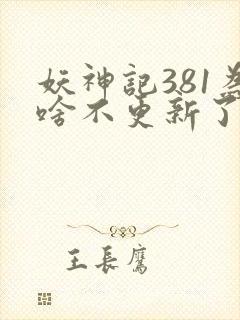 妖神記381為
啥不更新了
王長鷹